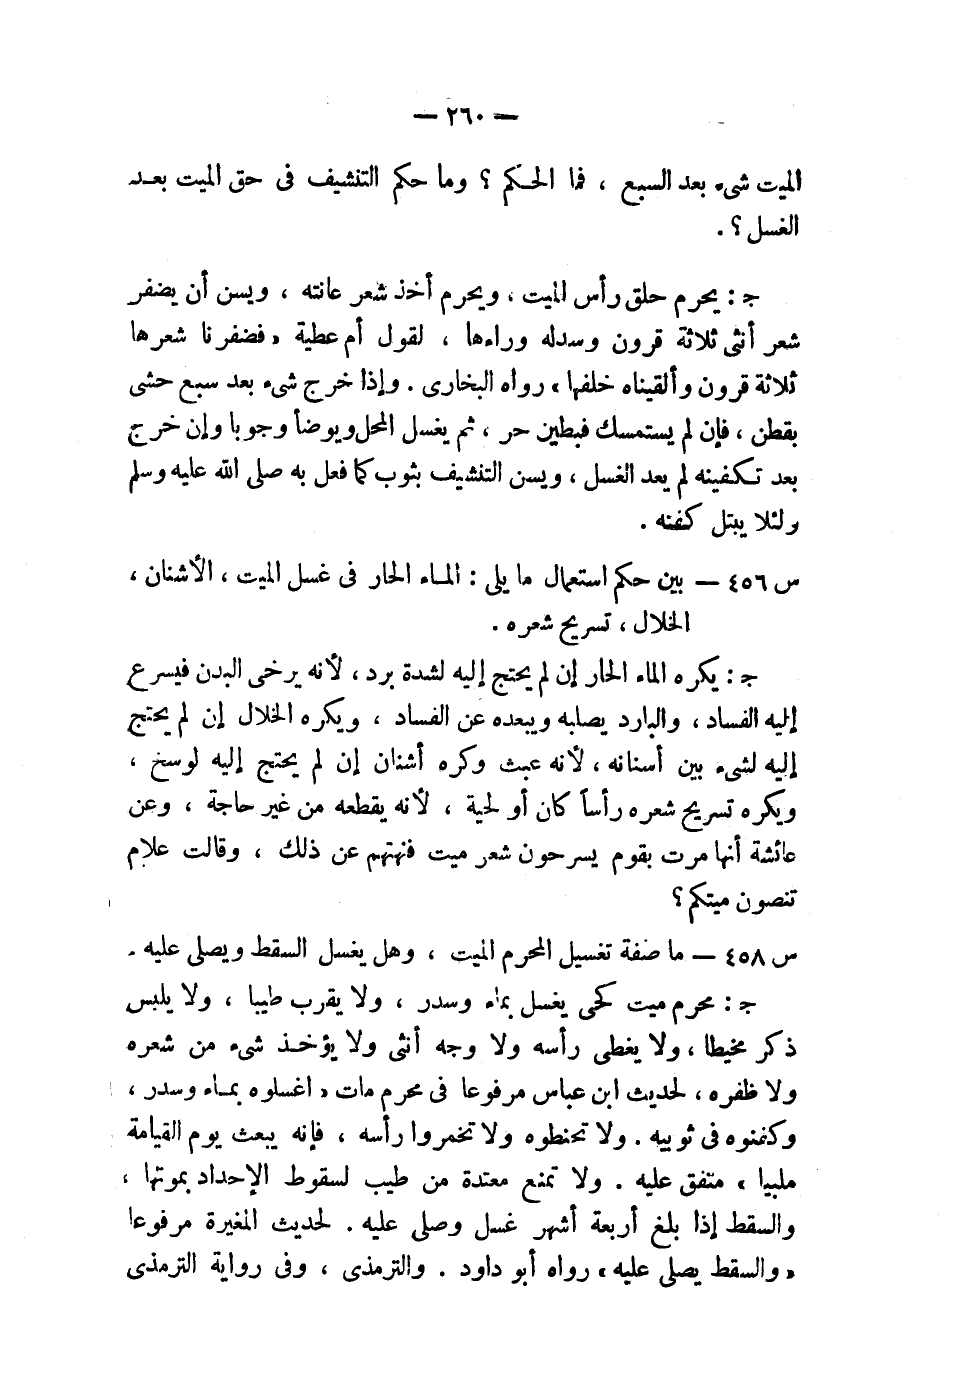 — ٢٦٠ —
الميت شىء بعد السبع ، فما الحكم ؟ وما حكم التنشيف فى حق الميت بعد
الغسل ؟ .
ج : يحرم حلق رأس الميت ، ويحرم أخذ شعر عانته ، ويسن أن يضفر
شعر أنثى ثلاثة قرون وسدله وراءها ، لقول أم عطية « فضفرنا شعرها
ثلاثة قرون وألقيناه خلفها » رواه البخارى . وإذا خرج شىء بعد سبع حشى
بقطن ، فإن لم يستمسك فبطين حر ، ثم يغسل المحل ويوضأ وجوبا وإن خرج
بعد تكفينه لم يعد الغسل ، ويسن التنشيف بثوب كما فعل به صلى الله عليه وسلم
ولئلا يبتل كفنه .
س ٤٥٦ — بين حكم استعمال ما يلى : الماء الحار فى غسل الميت ، الأشنان ،
الخلال ، تسريح شعره .
ج : يكره الماء الحار إن لم يحتج إليه لشدة برد ، لأنه يرخى البدن فيسرع
إليه الفساد ، والبارد يصلبه ويبعده عن الفساد ، ويكره الخلال إن لم يحتج
إليه لشىء بين أسنانه ، لأنه عبث وكره أشنان إن لم يحتج إليه لوسخ ،
ويكره تسريح شعره رأساً كان أو لحية ، لأنه يقطعه من غير حاجة ، وعن
عائشة أنها مرت بقوم يسرحون شعر ميت فنهتهم عن ذلك ، وقالت علام
تنصون ميتكم ؟
س ٤٥٨ — ما صفة تغسيل المحرم الميت ، وهل يغسل السقط ويصلى عليه .
ج : محرم ميت كحى يغسل بماء وسدر ، ولا يقرب طيبا ، ولا يلبس
ذكر مخيطا ، ولا يغطى رأسه ولا وجه أنثى ولا يؤخذ شىء من شعره
ولا ظفره ، لحديث ابن عباس مرفوعا فى محرم مات « اغسلوه بماء وسدر ،
وكفنوه فى ثوبيه . ولا تحنطوه ولا تخمروا رأسه ، فإنه يبعث يوم القيامة
ملبيا » متفق عليه . ولا تمنع معتدة من طيب لسقوط الإحداد بموتها ،
والسقط إذا بلغ أربعة أشهر غسل وصلى عليه . لحديث المغيرة مرفوعا
« والسقط يصلى عليه » رواه أبو داود . والترمذى ، وفى رواية الترمذى